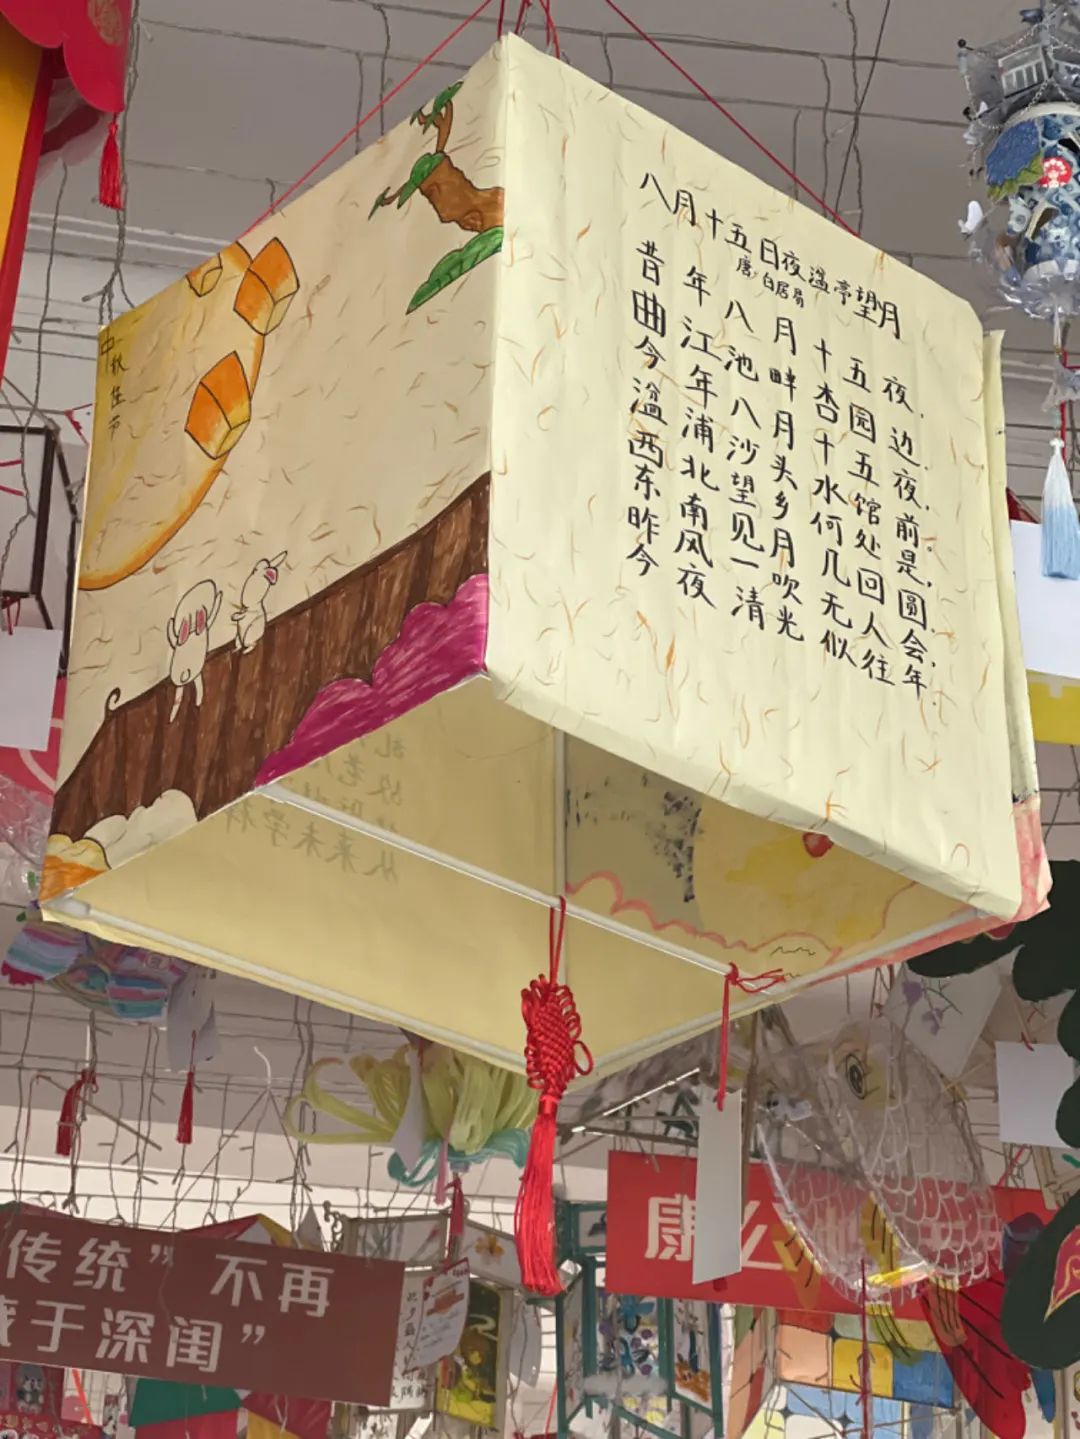 八月十五日夜湓亭望月
唐·白居易
昔年八月十五夜,
曲江池畔杏园边.
今年八月十五夜,
湓浦沙头水馆前.
西北望乡何处是,
东南见月几回圆.
昨风一吹无人会,
今夜清光似往年.
中秋佳节
传统”不再
于深闺”
康